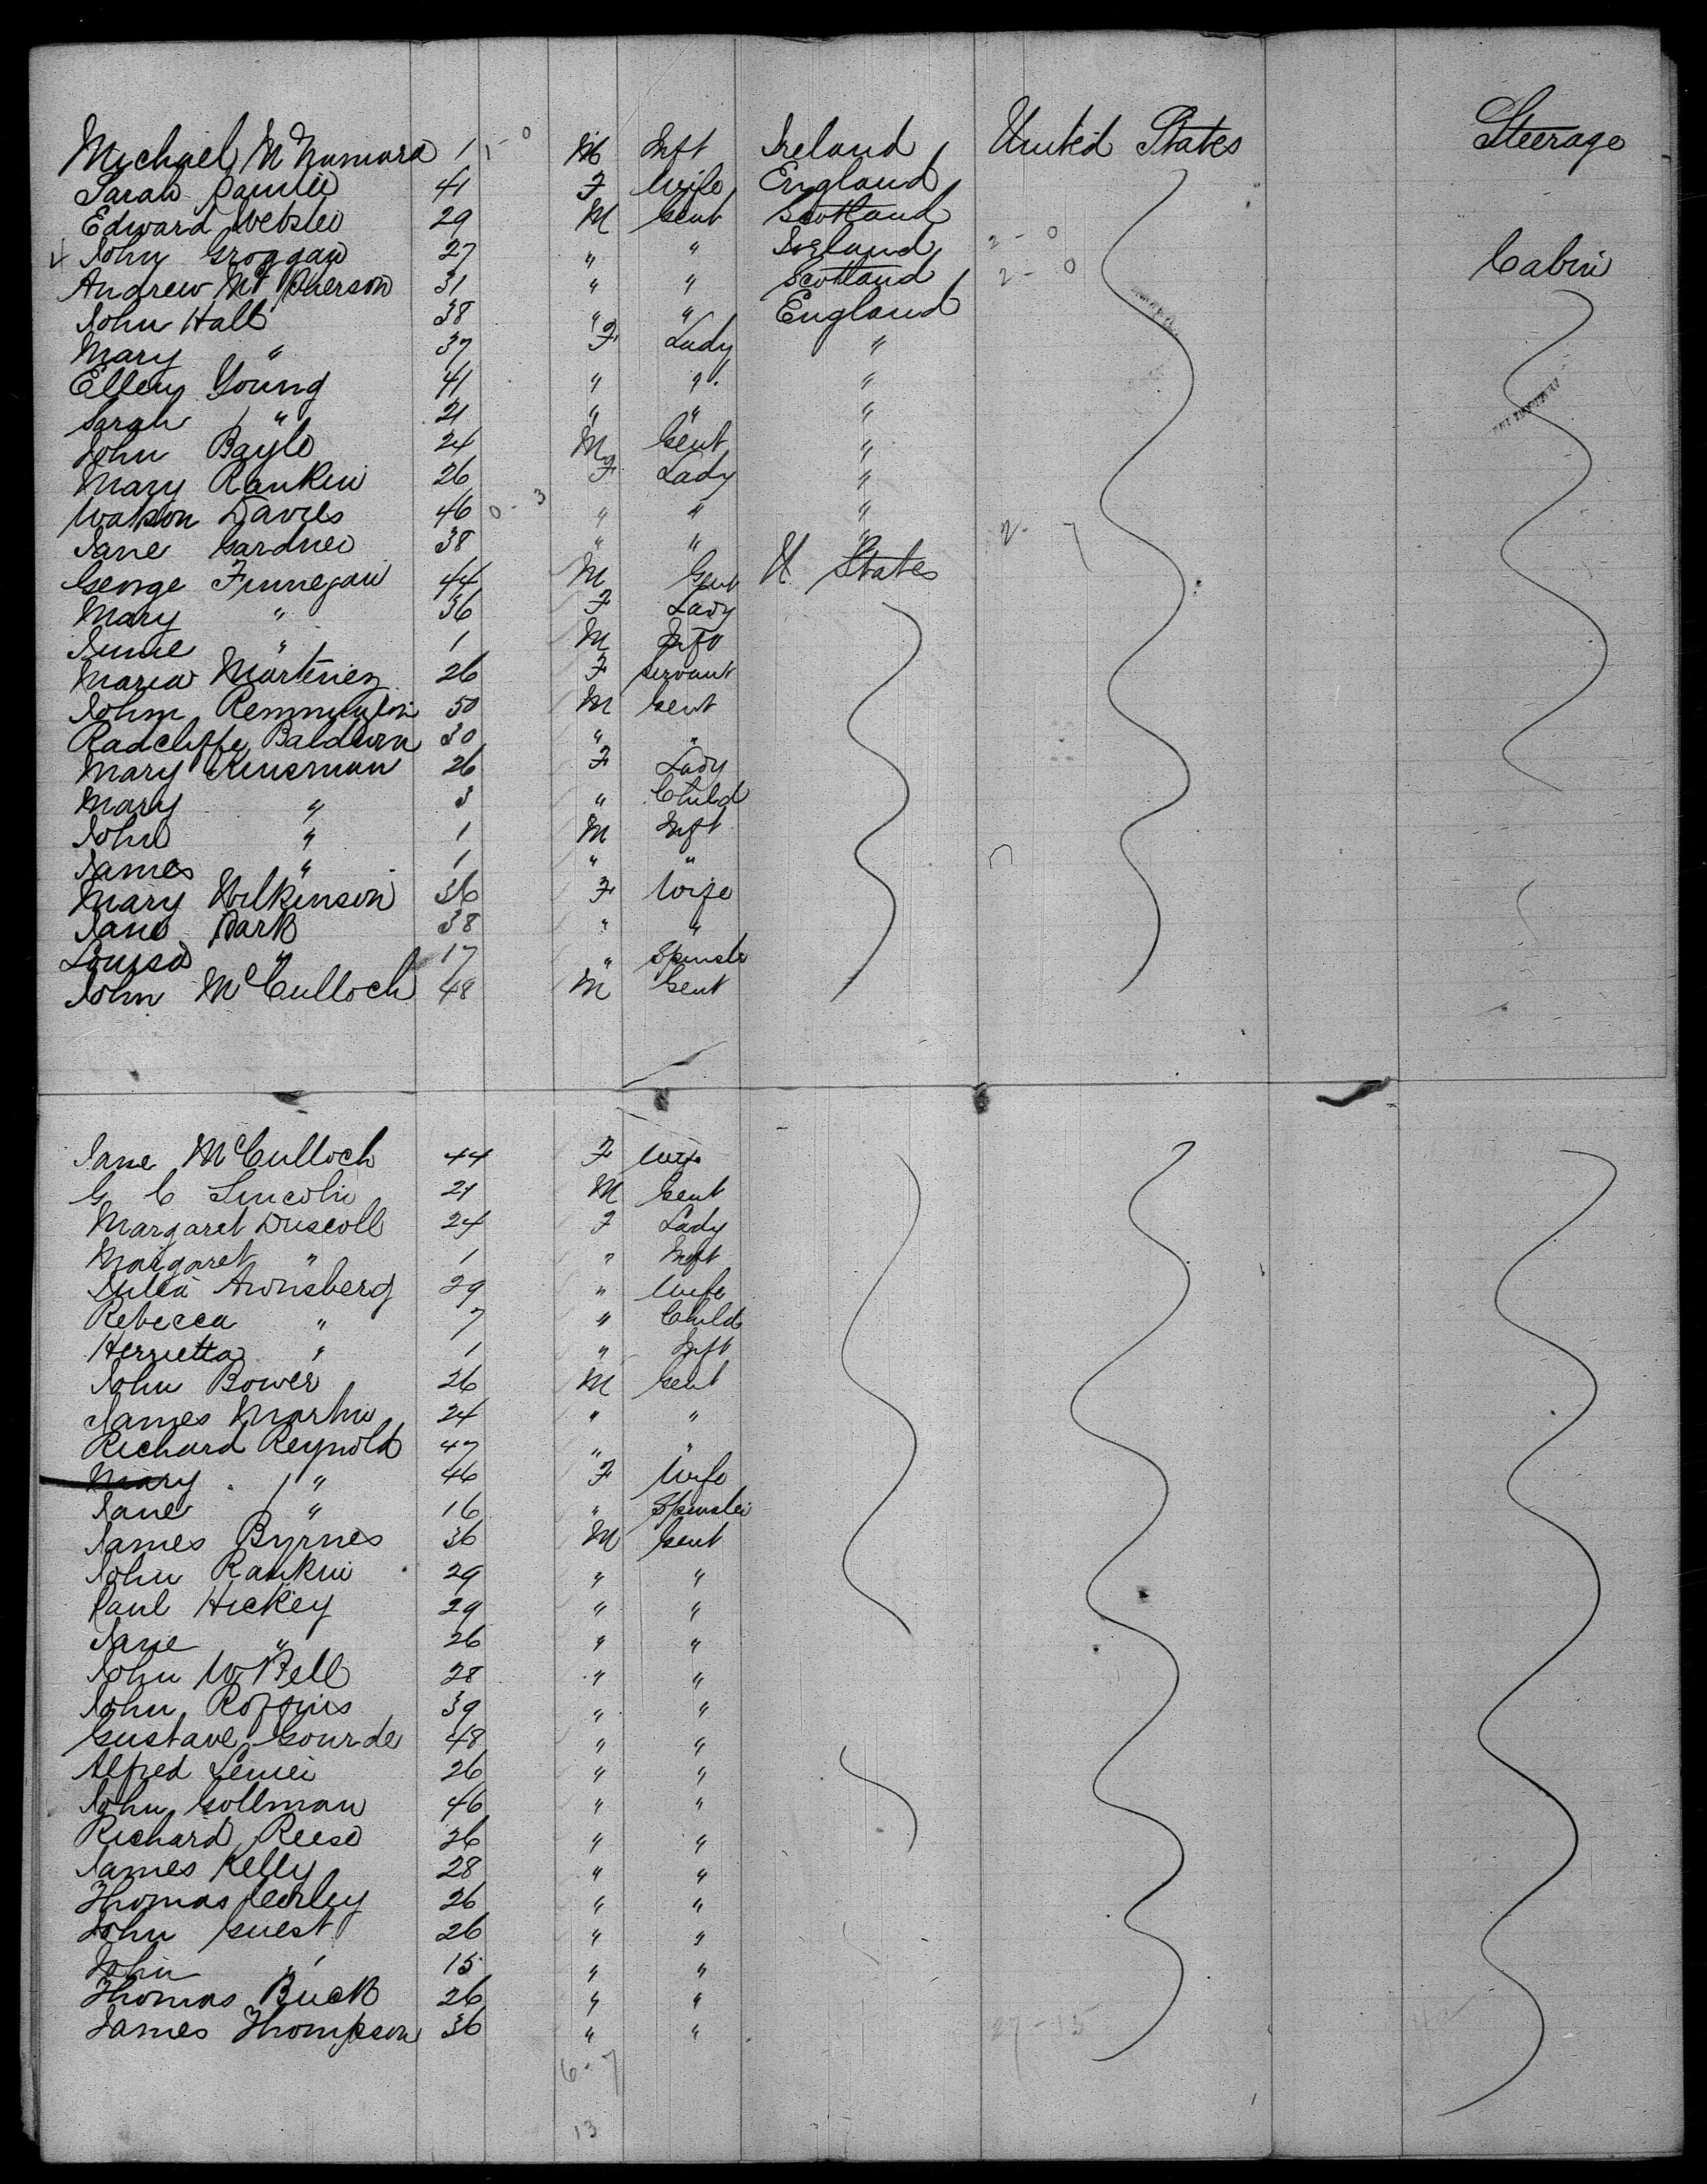 Michael McNamara 1 M Inft Ireland United States Steerage
Sarah 41 F Wife England
Edward Webster 29 M Gent Scotland
John Groggan 27 " " Ireland 2 - 0 Cabin
Andrew McPherson 31 " " Scotland 2 - 0
John Hall 38 " " England
Mary " 37 F Lady "
Ellen Young 41 " " "
Sarah " 21 " " "
John Bayle 24 M Gent "
Mary Rankin 26 F Lady "
Watson Davies 46 0 - 3 " " "
Jane Gardner 38 " " " 2 - 7
George Finnegan 44 M Gent U States
Mary " 36 F Lady
" 1 M Inft
Maria Martinez 26 F Servant
John Remmington 50 M Gent
Radcliffe Baldwin 30 " "
Mary Kinsman 26 F Lady
Mary " 3 " Child
John " 1 M Inft
James " 1 " "
Mary Wilkinson 36 F Wife
Jane Park 38 " "
Louisa " 17 " Spinster
John McCulloch 48 M Gent
Jane McCulloch 44 F Wife
G C Lincoln 21 M Gent
Margaret Driscoll 24 F Lady
Margaret " 1 " Inft
Julia Arnsberg 29 " Wife
Rebecca " 7 " Child
Herrietta " 1 " Inft
John Bower 26 M Gent
James Martin 24 " "
Richard Reynold 47 " "
Mary " 46 F Wife
Jane " 16 " Spinster
James Byrnes 36 M Gent
John Rankin 29 " "
Paul Hickey 29 " "
Jane " 26 " "
John W Bell 28 " "
John 39 " "
Gustave Gourde 48 " "
Alfred 26 " "
John Gollman 46 " "
Richard Reese 26 " "
James Kelly 28 " "
Thomas 26 " "
John Guest 26 " "
John " 15 " "
Thomas Buck 26 " "
James Thompson 36 " " 27 - 15
6 - 7
13